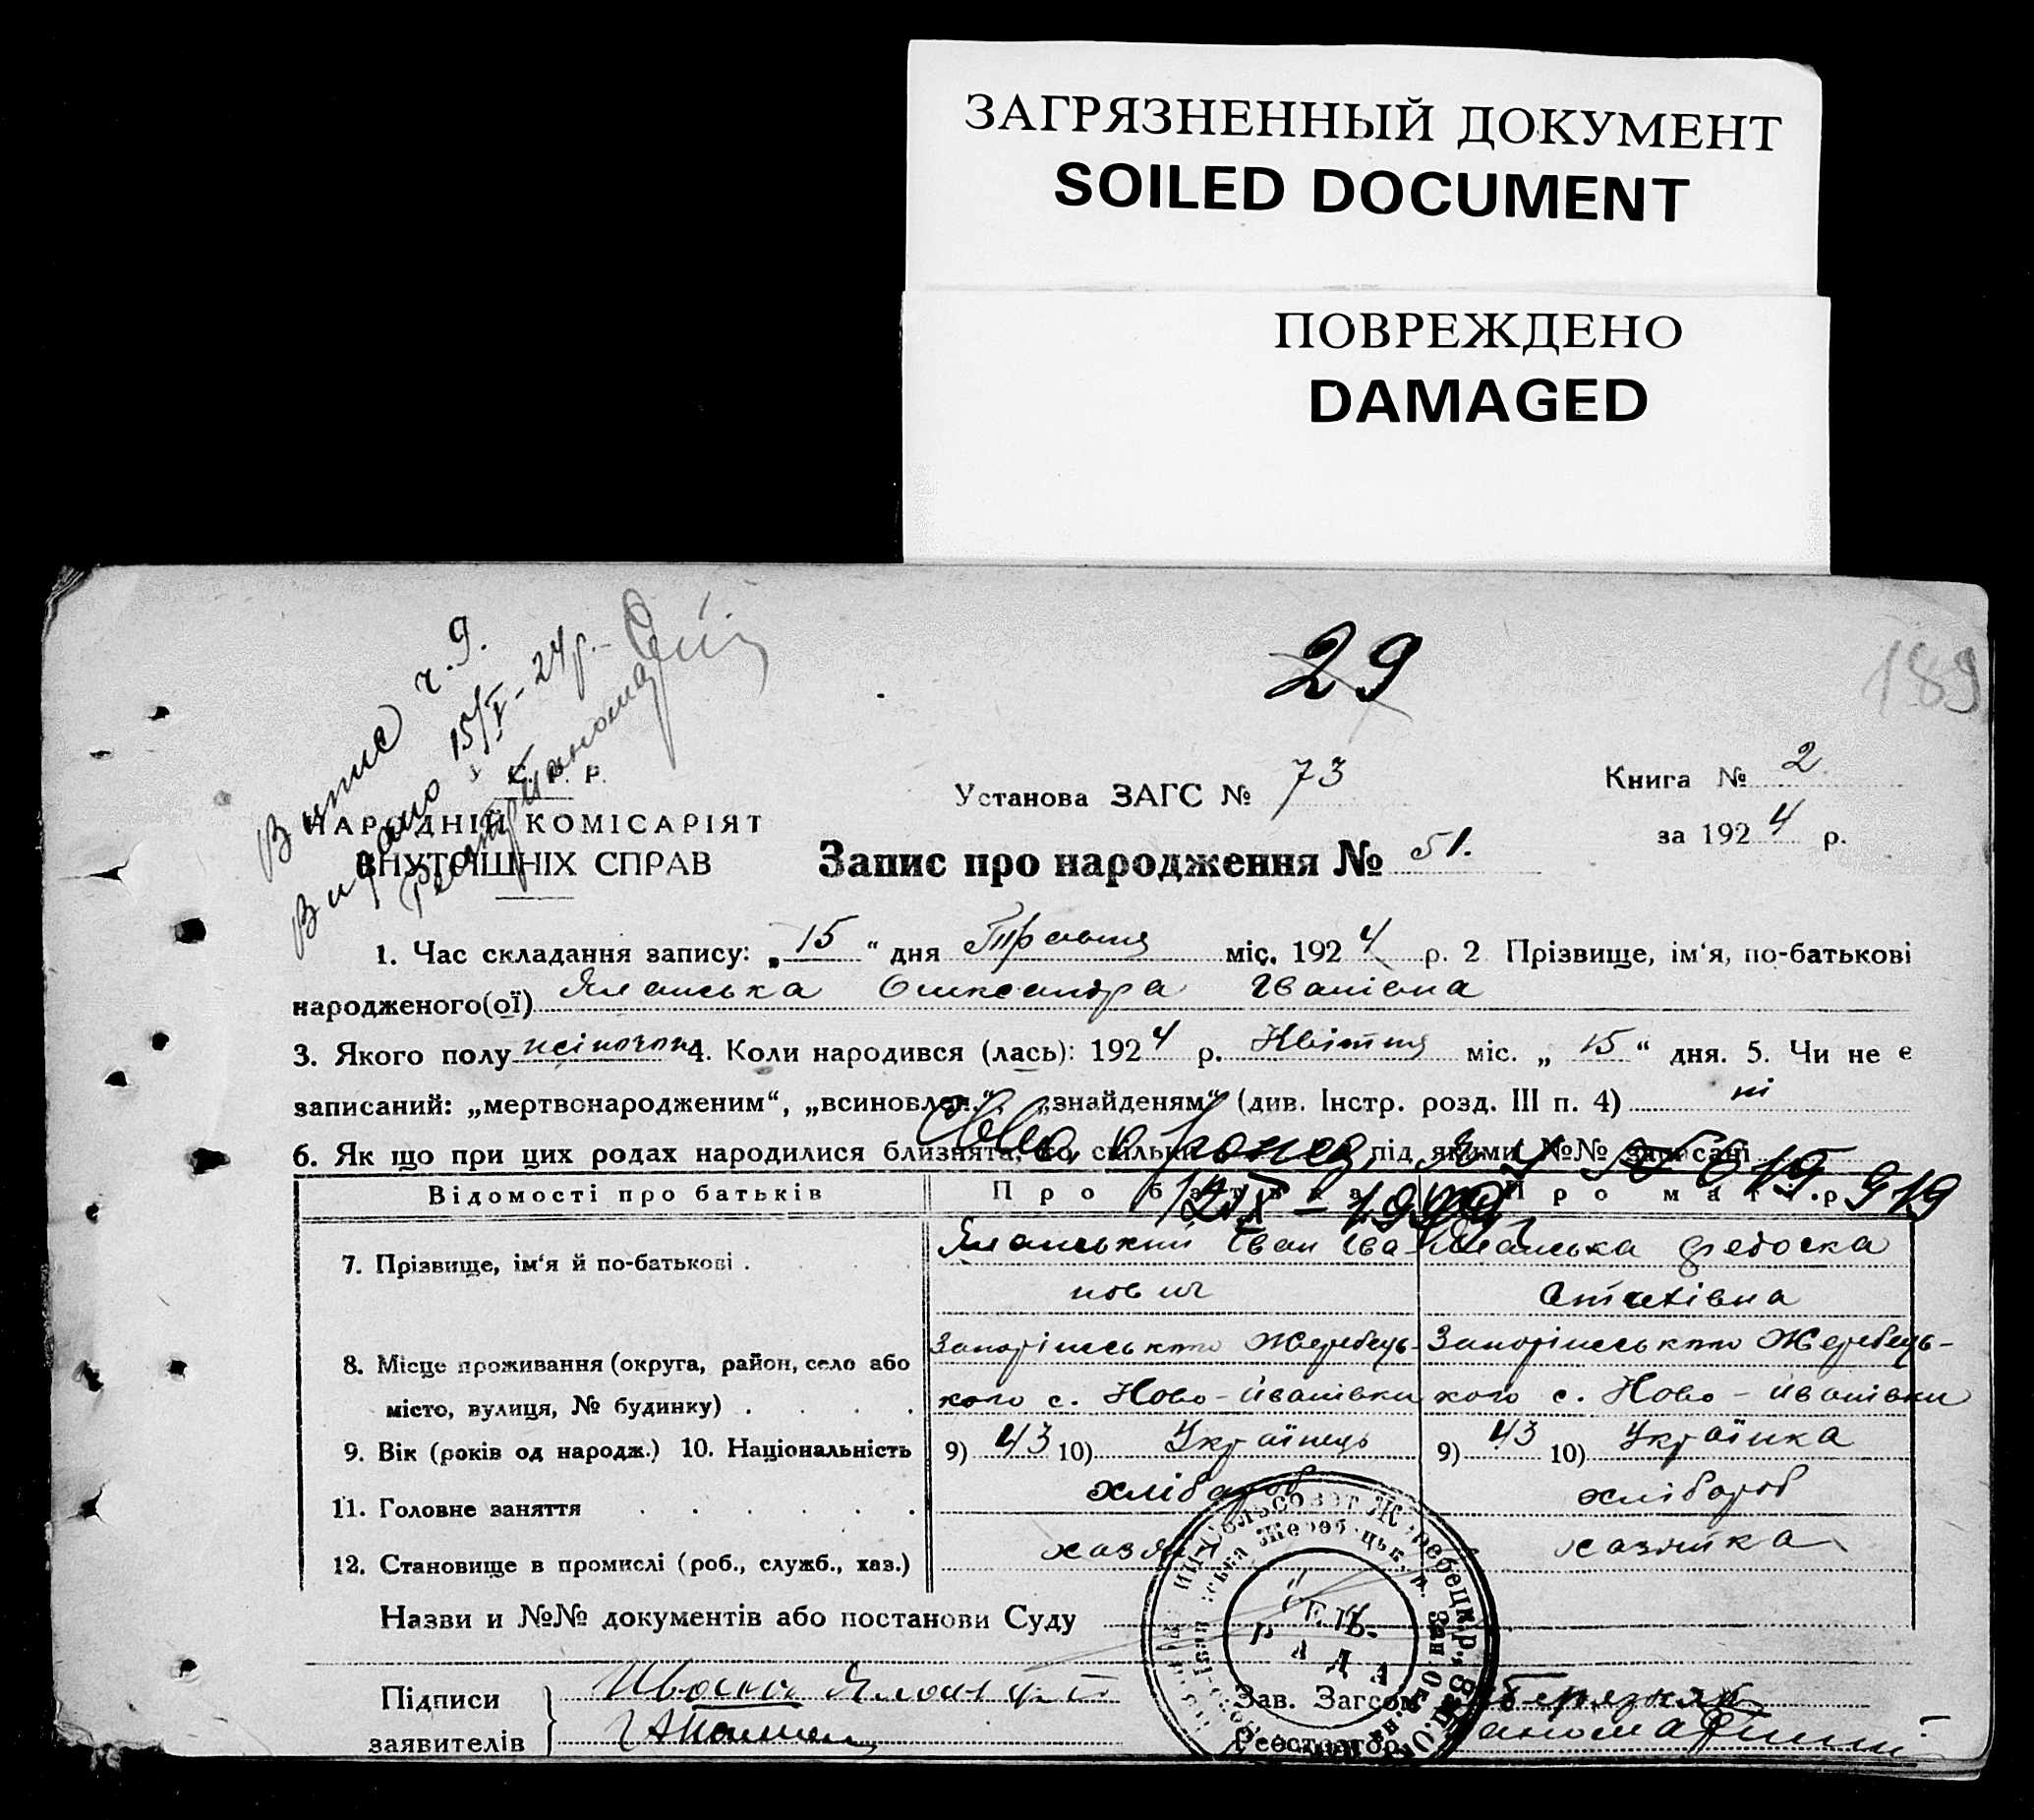 ЗАГРЯЗНЕННЫЙ ДОКУМЕНТ
SOILED DOCUMENT
ПОВРЕЖДЕНО
DAMAGED
29
189
Випис ч. 9.
Видано 15/V - 24 р.
С. Р. Р.
НАРОДНІЙ КОМІСАРІЯТ
ВНУТРІШНІХ СПРАВ
Установа ЗАГС № 73
Книга № 2
за 1924 р.
Запис про народження № 51.
1. Час складання запису: „15“ дня Травня міс. 1924 р. 2 Прізвище, ім‘я, по-батькові
народженого(ої) Яланська Олександра Іванівна
3. Якого полу жіночого 4. Коли народився (лась): 1924 р. Квітня міс. „ 15 “ дня. 5. Чи не є
записаний: „мертвонародженим“, „всиновлен.“, „знайденям“ (див. Інстр. розд. III п. 4) ні
6. Як що при цих родах народилися близнята, то скільки під якими №№ записані
Відомості про батьків Про батька Про матір
7. Прізвище, ім‘я й по-батькові . Яланський Іван Іва- Яланська Федоска
нович Остахівна
8. Місце проживання (округа, район, село або Запоріжського Жеребець- Запоріжського Жеребець-
місто, вулиця, № будинку) . . . . кого с. Ново-Иванівки кого с. Ново-Иванівки
9. Вік (років од народж.) 10. Національність 9) 43 10) Українець 9) 43 10) Українка
11. Головне заняття . . . . . хлібороб хлібороб
12. Становище в промислі (роб., служб., хаз.) хазяїн хазяйка
Назви и №№ документів або постанови Суду
СІЛЬ-
РАДА
Підписи
заявителів
Зав. Загсом
Реєстратор